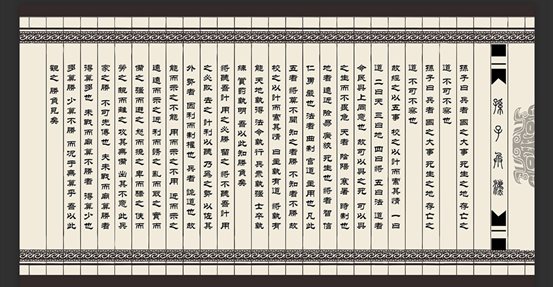 孫子兵法
孫子曰 兵者 國之大事 死生之地 存亡之
道 不可不察也
孫子曰 兵者 國之大事 死生之地 存亡之
道 不可不察也
故經之以五事 校之以計而索其情 一曰
道 二曰天 三曰地 四曰將 五曰法 道者
令民與上同意也 故可以與之死 可以與
之生而不畏危 天者 陰陽 寒暑 時制也
地者 遠近 險易 廣狹 死生也 將者 智信
仁勇嚴也 法者 曲制 官道 主用也 凡此
五者 將莫不聞 知之者勝 不知者不勝 故
校之以計而索其情 曰主孰有道 將孰有
能 天地孰得 法令孰行 兵眾孰強 士卒孰
練 賞罰孰明 吾以此知勝負矣
將聽吾計 用之必勝 留之 將不聽吾計 用
之必敗 去之 計利以聽 乃為之勢 以佐其
外 勢者 因利而制權也 兵者 詭道也 故
能而示之不能 用而示之不用 近而示之
遠 遠而示之近 利而誘之 亂而取之 實而
備之 強而避之 怒而撓之 卑而驕之 佚而
勞之 親而離之 攻其無備 出其不意 此兵
家之勝 不可先傳也 夫未戰而廟算勝者
得算多也 未戰而廟算不勝者 得算少也
多算勝 少算不勝 而況于無算乎 吾以此
觀之 勝負見矣